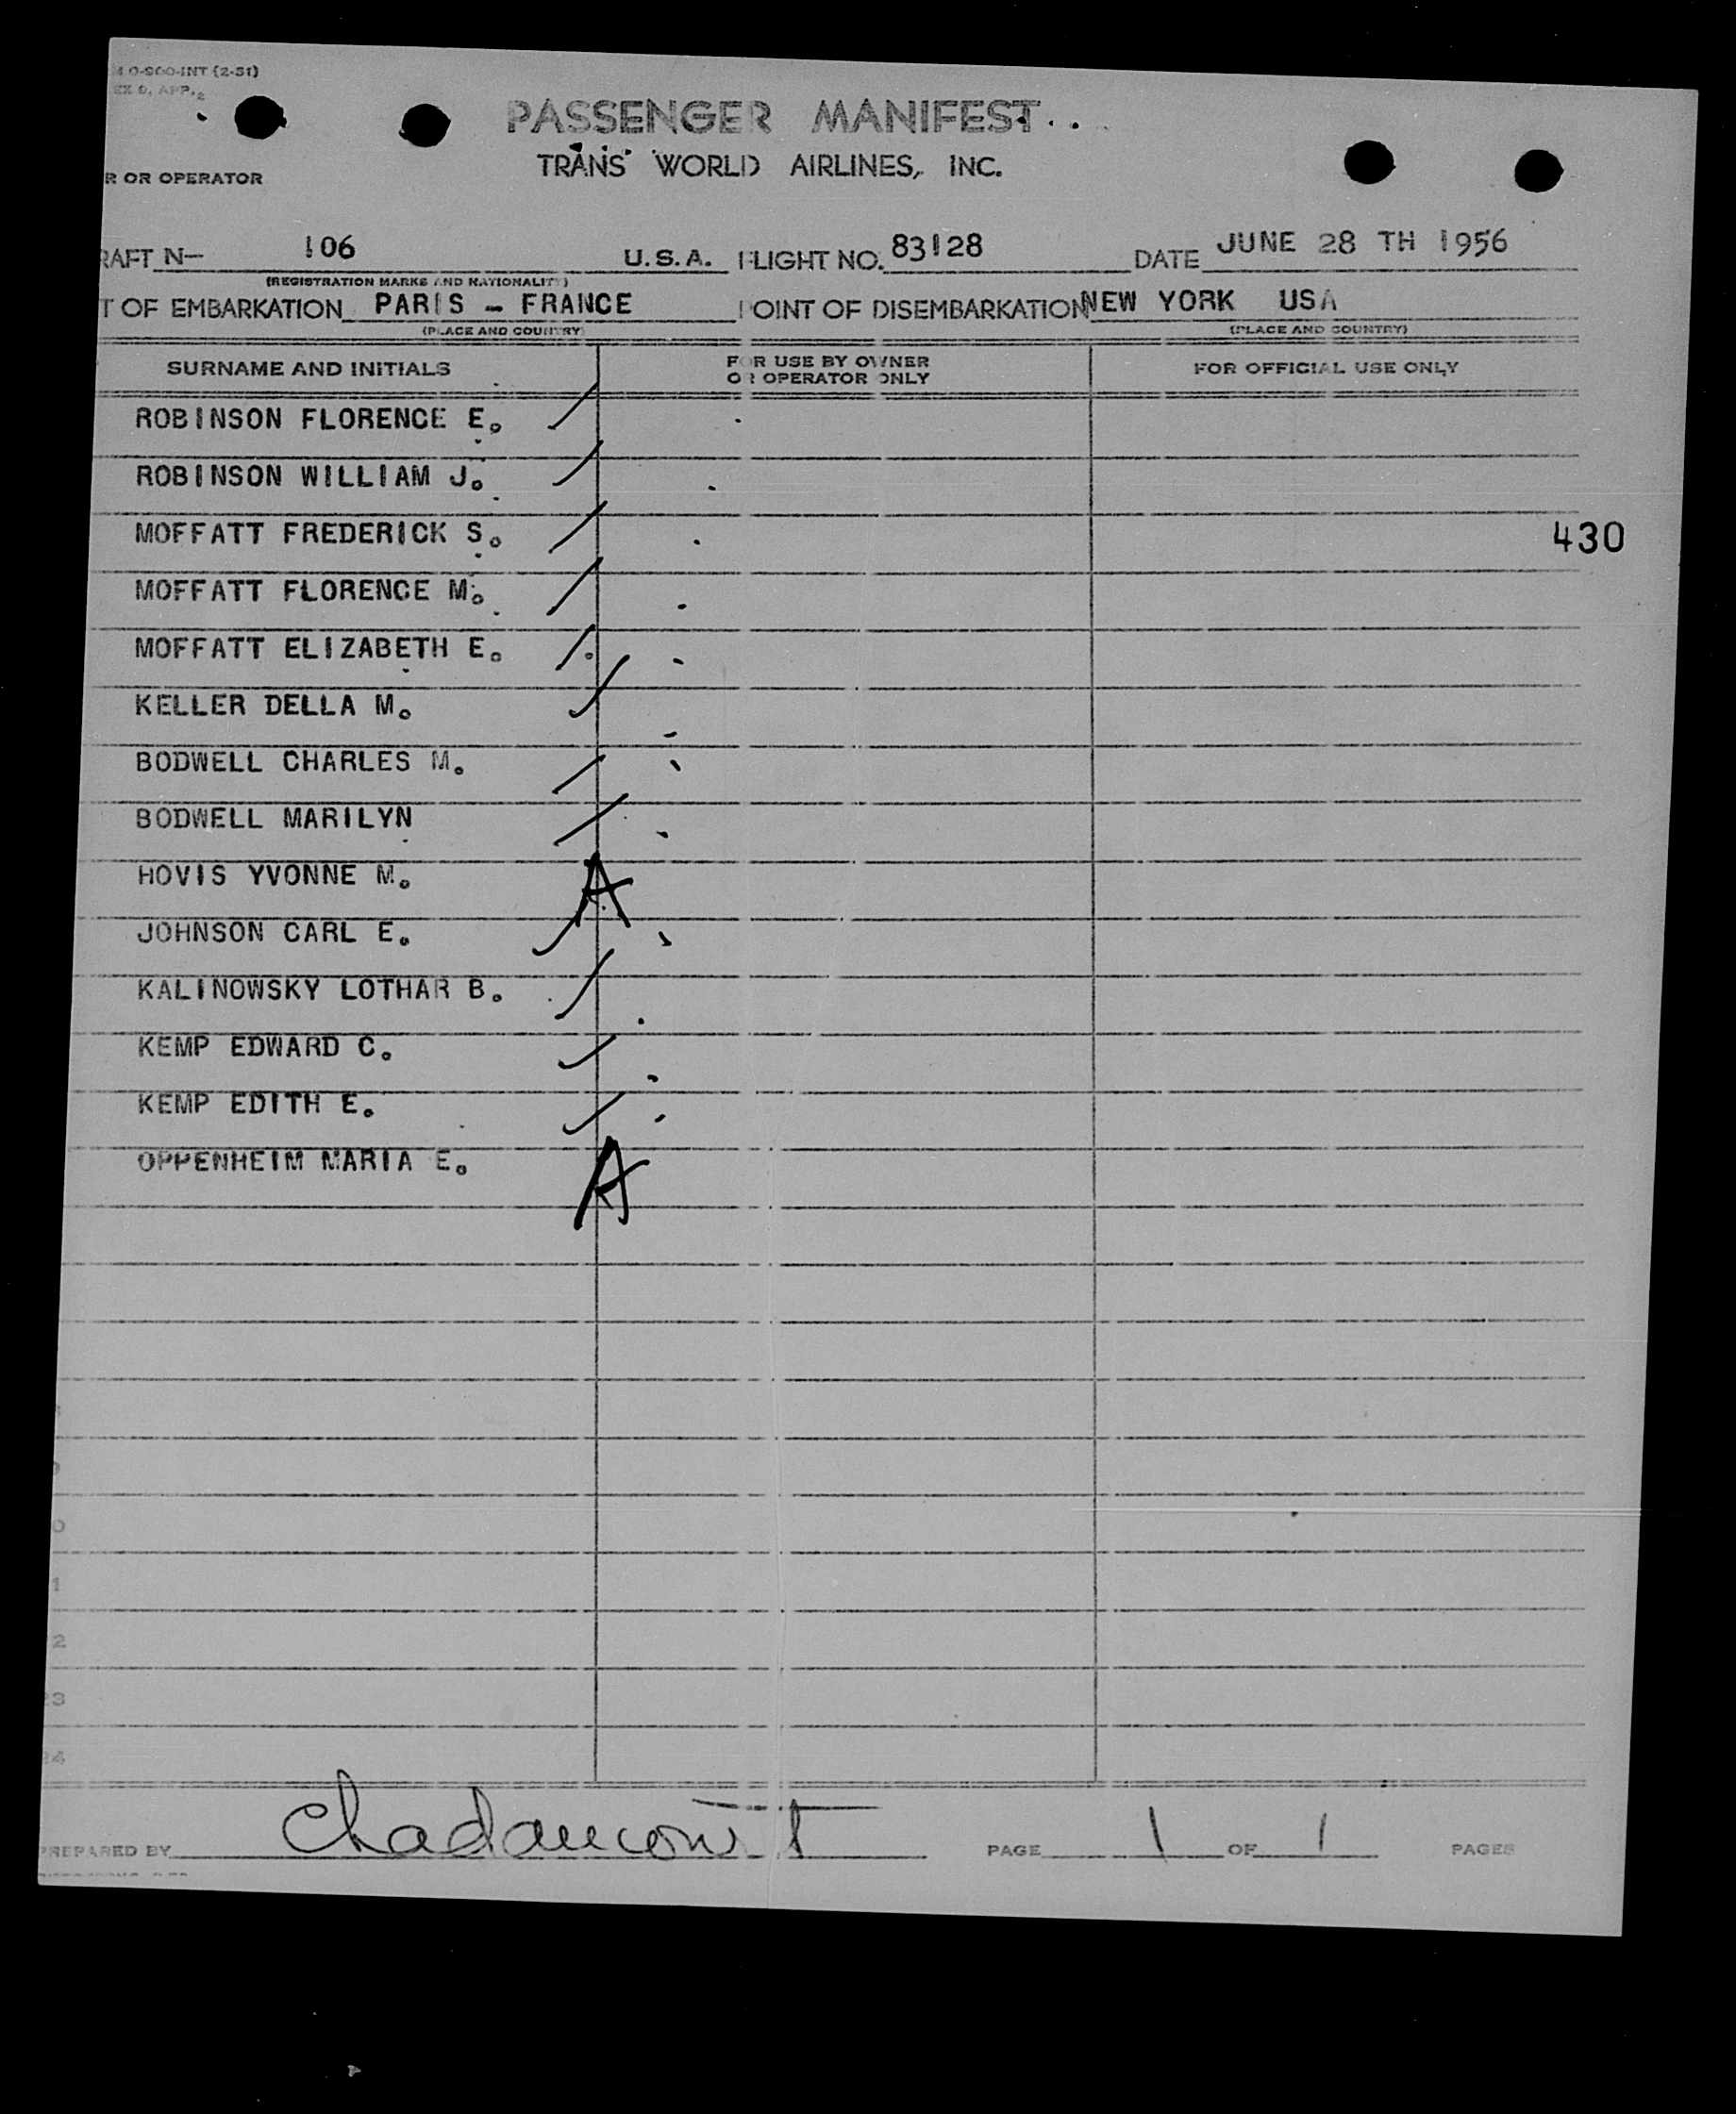 O-900-INT (2-51)
PASSENGER MANIFEST
TRANS WORLD AIRLINES, INC.
R OR OPERATOR
RAFT N— 106 U.S.A. FLIGHT NO. 83128 DATE JUNE 28 TH 1956
(REGISTRATION MARKS AND NATIONALITY)
T OF EMBARKATION PARIS – FRANCE POINT OF DISEMBARKATION NEW YORK USA
(PLACE AND COUNTRY) (PLACE AND COUNTRY)
SURNAME AND INITIALS FOR USE BY OWNER OR OPERATOR ONLY FOR OFFICIAL USE ONLY
ROBINSON FLORENCE E.
ROBINSON WILLIAM J.
MOFFATT FREDERICK S. 430
MOFFATT FLORENCE M.
MOFFATT ELIZABETH E.
KELLER DELLA M.
BODWELL CHARLES M.
BODWELL MARILYN
HOVIS YVONNE M. A
JOHNSON CARL E.
KALINOWSKY LOTHAR B.
KEMP EDWARD C.
KEMP EDITH E.
OPPENHEIM MARIA E. A
0
1
2
23
24
PREPARED BY PAGE 1 OF 1 PAGES